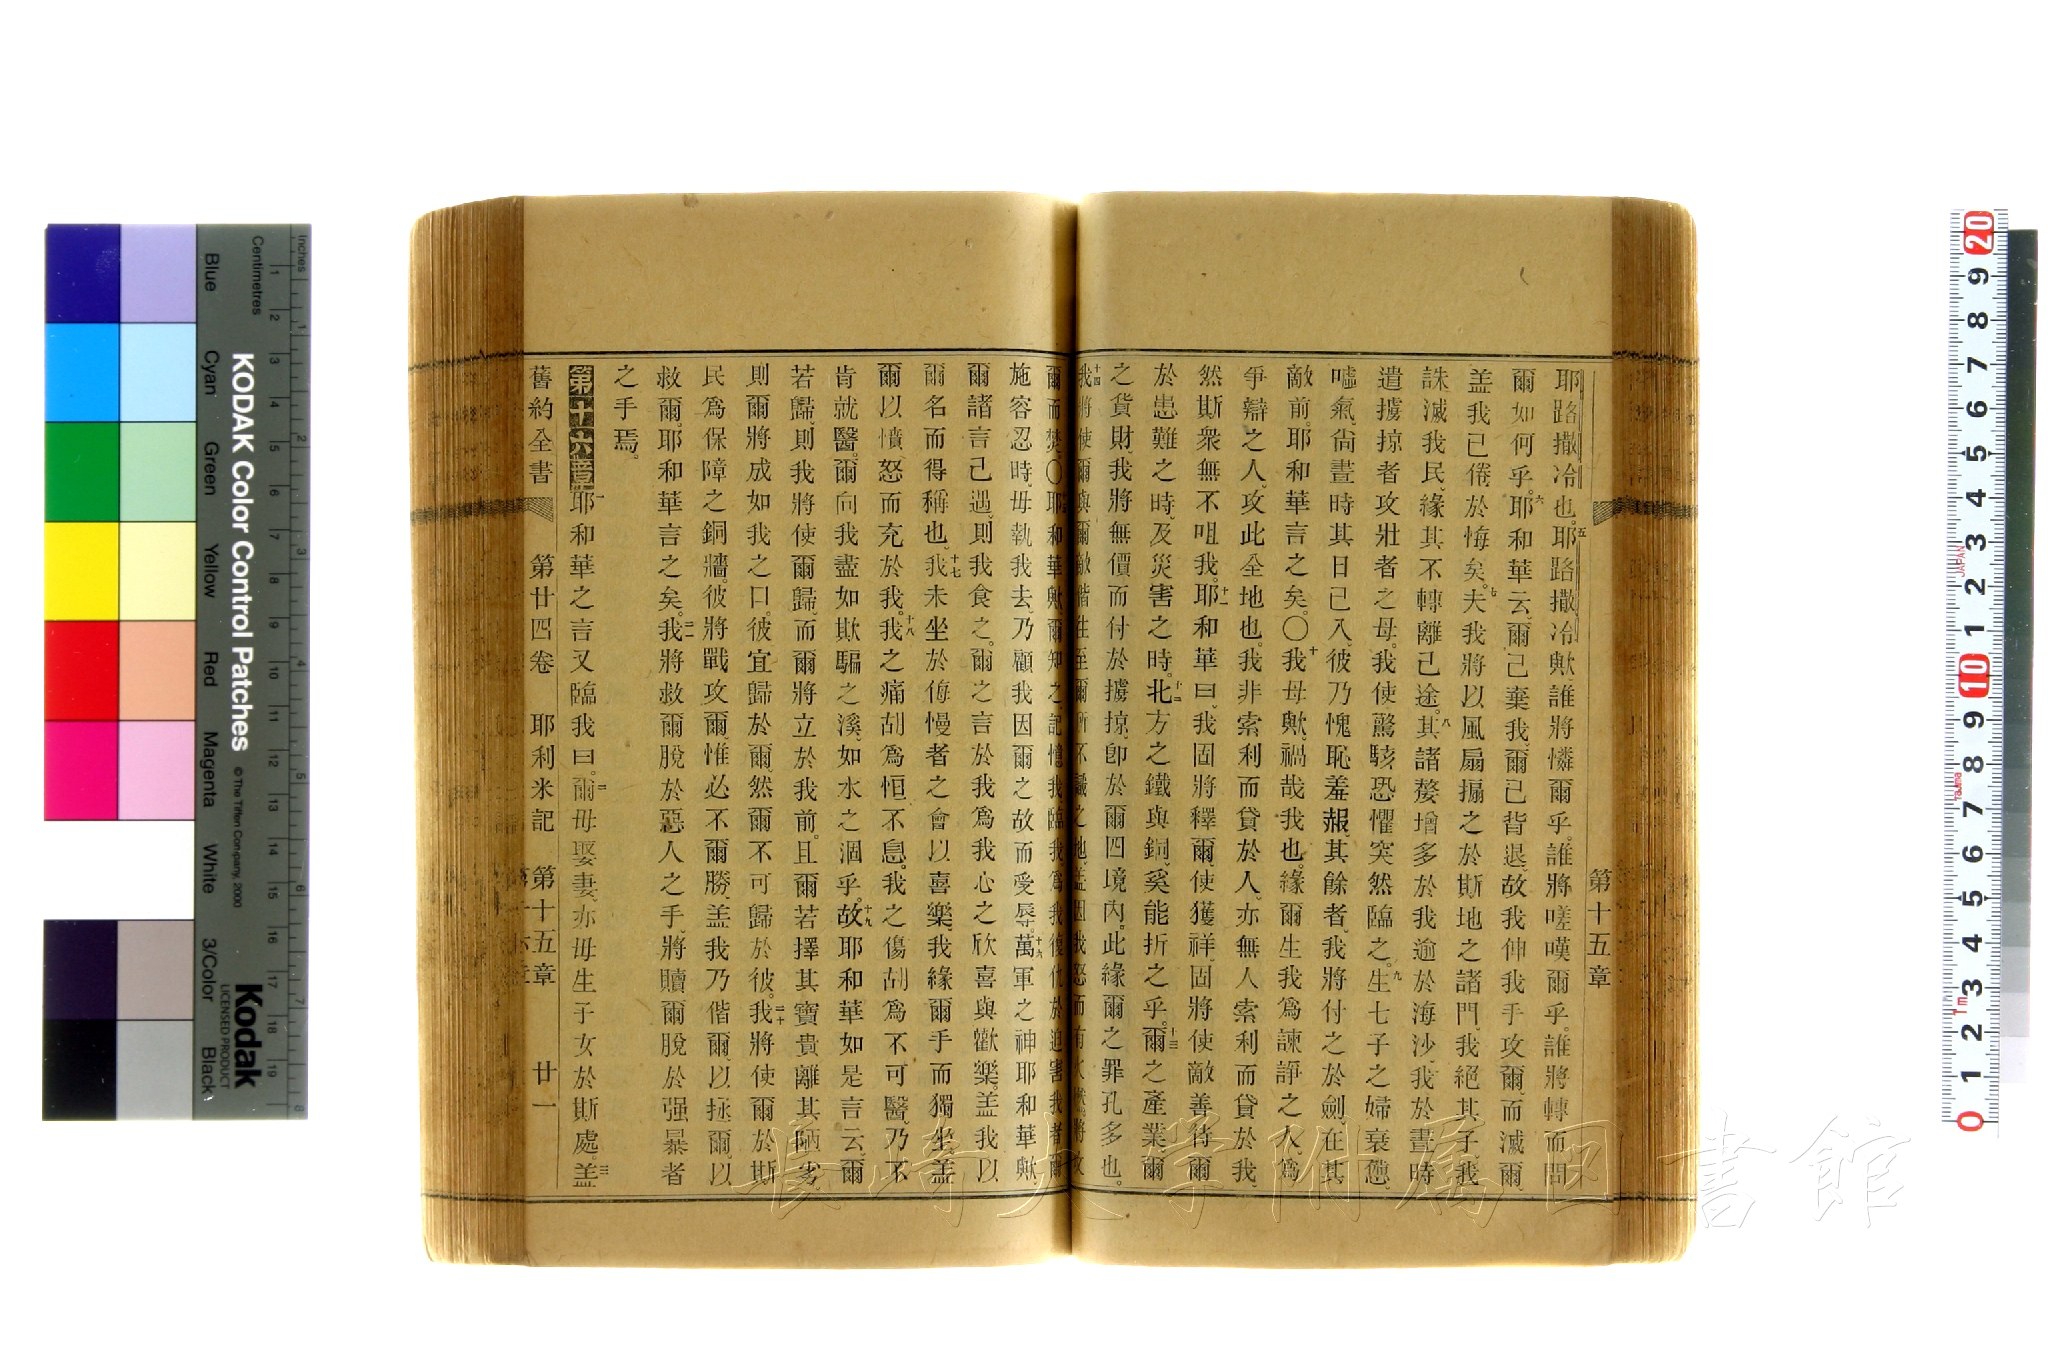 第十五章
耶路撒冷也。五耶路撒冷歟、誰將憐爾乎。誰將嗟嘆爾乎。誰將轉而問
爾如何乎。六耶和華云、爾已棄我、爾已背退、故我伸我手攻爾、而滅爾、
盖我已倦於悔矣。七夫我將以風扇搧之於斯地之諸門、我絕其子、我
誅滅我民、緣其不轉離己途。八其諸嫠增多於我逾於海沙、我於晝時
遣擄掠者攻壯者之母。我使驚駭恐懼突然臨之。九生七子之婦衰憊、
噓氣、尚晝時其日已入、彼乃愧恥羞赧、其餘者、我將付之於劍、在其
敵前。耶和華言之矣。〇十我母歟、禍哉我也。緣爾生我為諫諍之人、為
爭辯之人、攻此全地也。我非索利而貸於人、亦無人索利而貸於我、
然斯衆無不咀我。十一耶和華曰、我固將釋爾、使獲祥、固將使敵善待爾
於患難之時、及災害之時。十二北方之鐵與銅、奚能折之乎。十三爾之產業爾
之貨財、我將無價而付於擄掠、卽於爾四境內。此緣爾之罪孔多也。
十四我將使爾與爾敵偕往至爾所不識之地、盖因我怒而有火燃、將攻
爾而焚。〇耶和華歟、爾知之、記憶我、臨我、為我復仇於迫害我者、爾
施容忍時、毋執我去、乃顧我因爾之故而受辱。十六萬軍之神耶和華歟、
爾諸言已遇、則我食之。爾之言於我為我心之欣喜與歡樂。盖我以
爾名而得稱也。十七我未坐於侮慢者之會以喜樂、我緣爾手而獨坐、盖
爾以憤怒而充於我。十八我之痛胡為恒不息。我之傷胡為不可醫、乃不
肯就醫。爾向我盡如欺騙之溪、如水之涸乎。十九故耶和華如是言云、爾
若歸、則我將使爾歸、而爾將立於我前。且爾若擇其寶貴離其陋劣、
則爾將成如我之口。彼宜歸於爾、然爾不可歸於彼。二十我將使爾於斯
民為保障之銅牆。彼將戰攻爾、惟必不爾勝、盖我乃偕爾、以拯爾、以
救爾。耶和華言之矣。二一我將救爾脫於惡人之手、將贖爾脫於强暴者
之手焉。
第十六章 一耶和華之言又臨我曰。二爾毋娶妻、亦毋生子女於斯處。三盖
舊約全書 第廿四卷 耶利米記 第十五章 廿一
KODAK Color Control Patches
© The Tiffen Company, 2000
Kodak
LICENSED PRODUCT
Inches
Centimetres
Blue
Cyan
Green
Yellow
Red
Magenta
White
3/Color
Black
JAPAN
長崎大学附属図書館